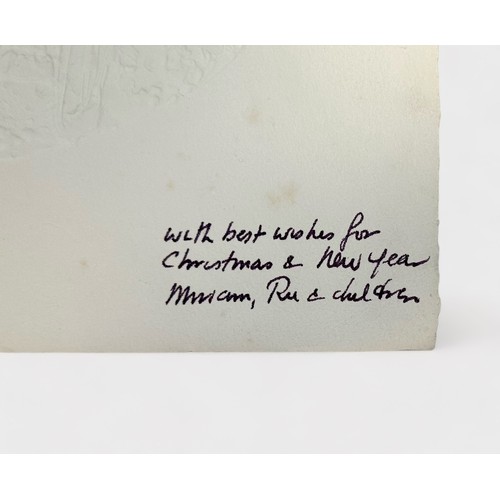 with best wishes for
Christmas & New Year
Miriam, Ru & children